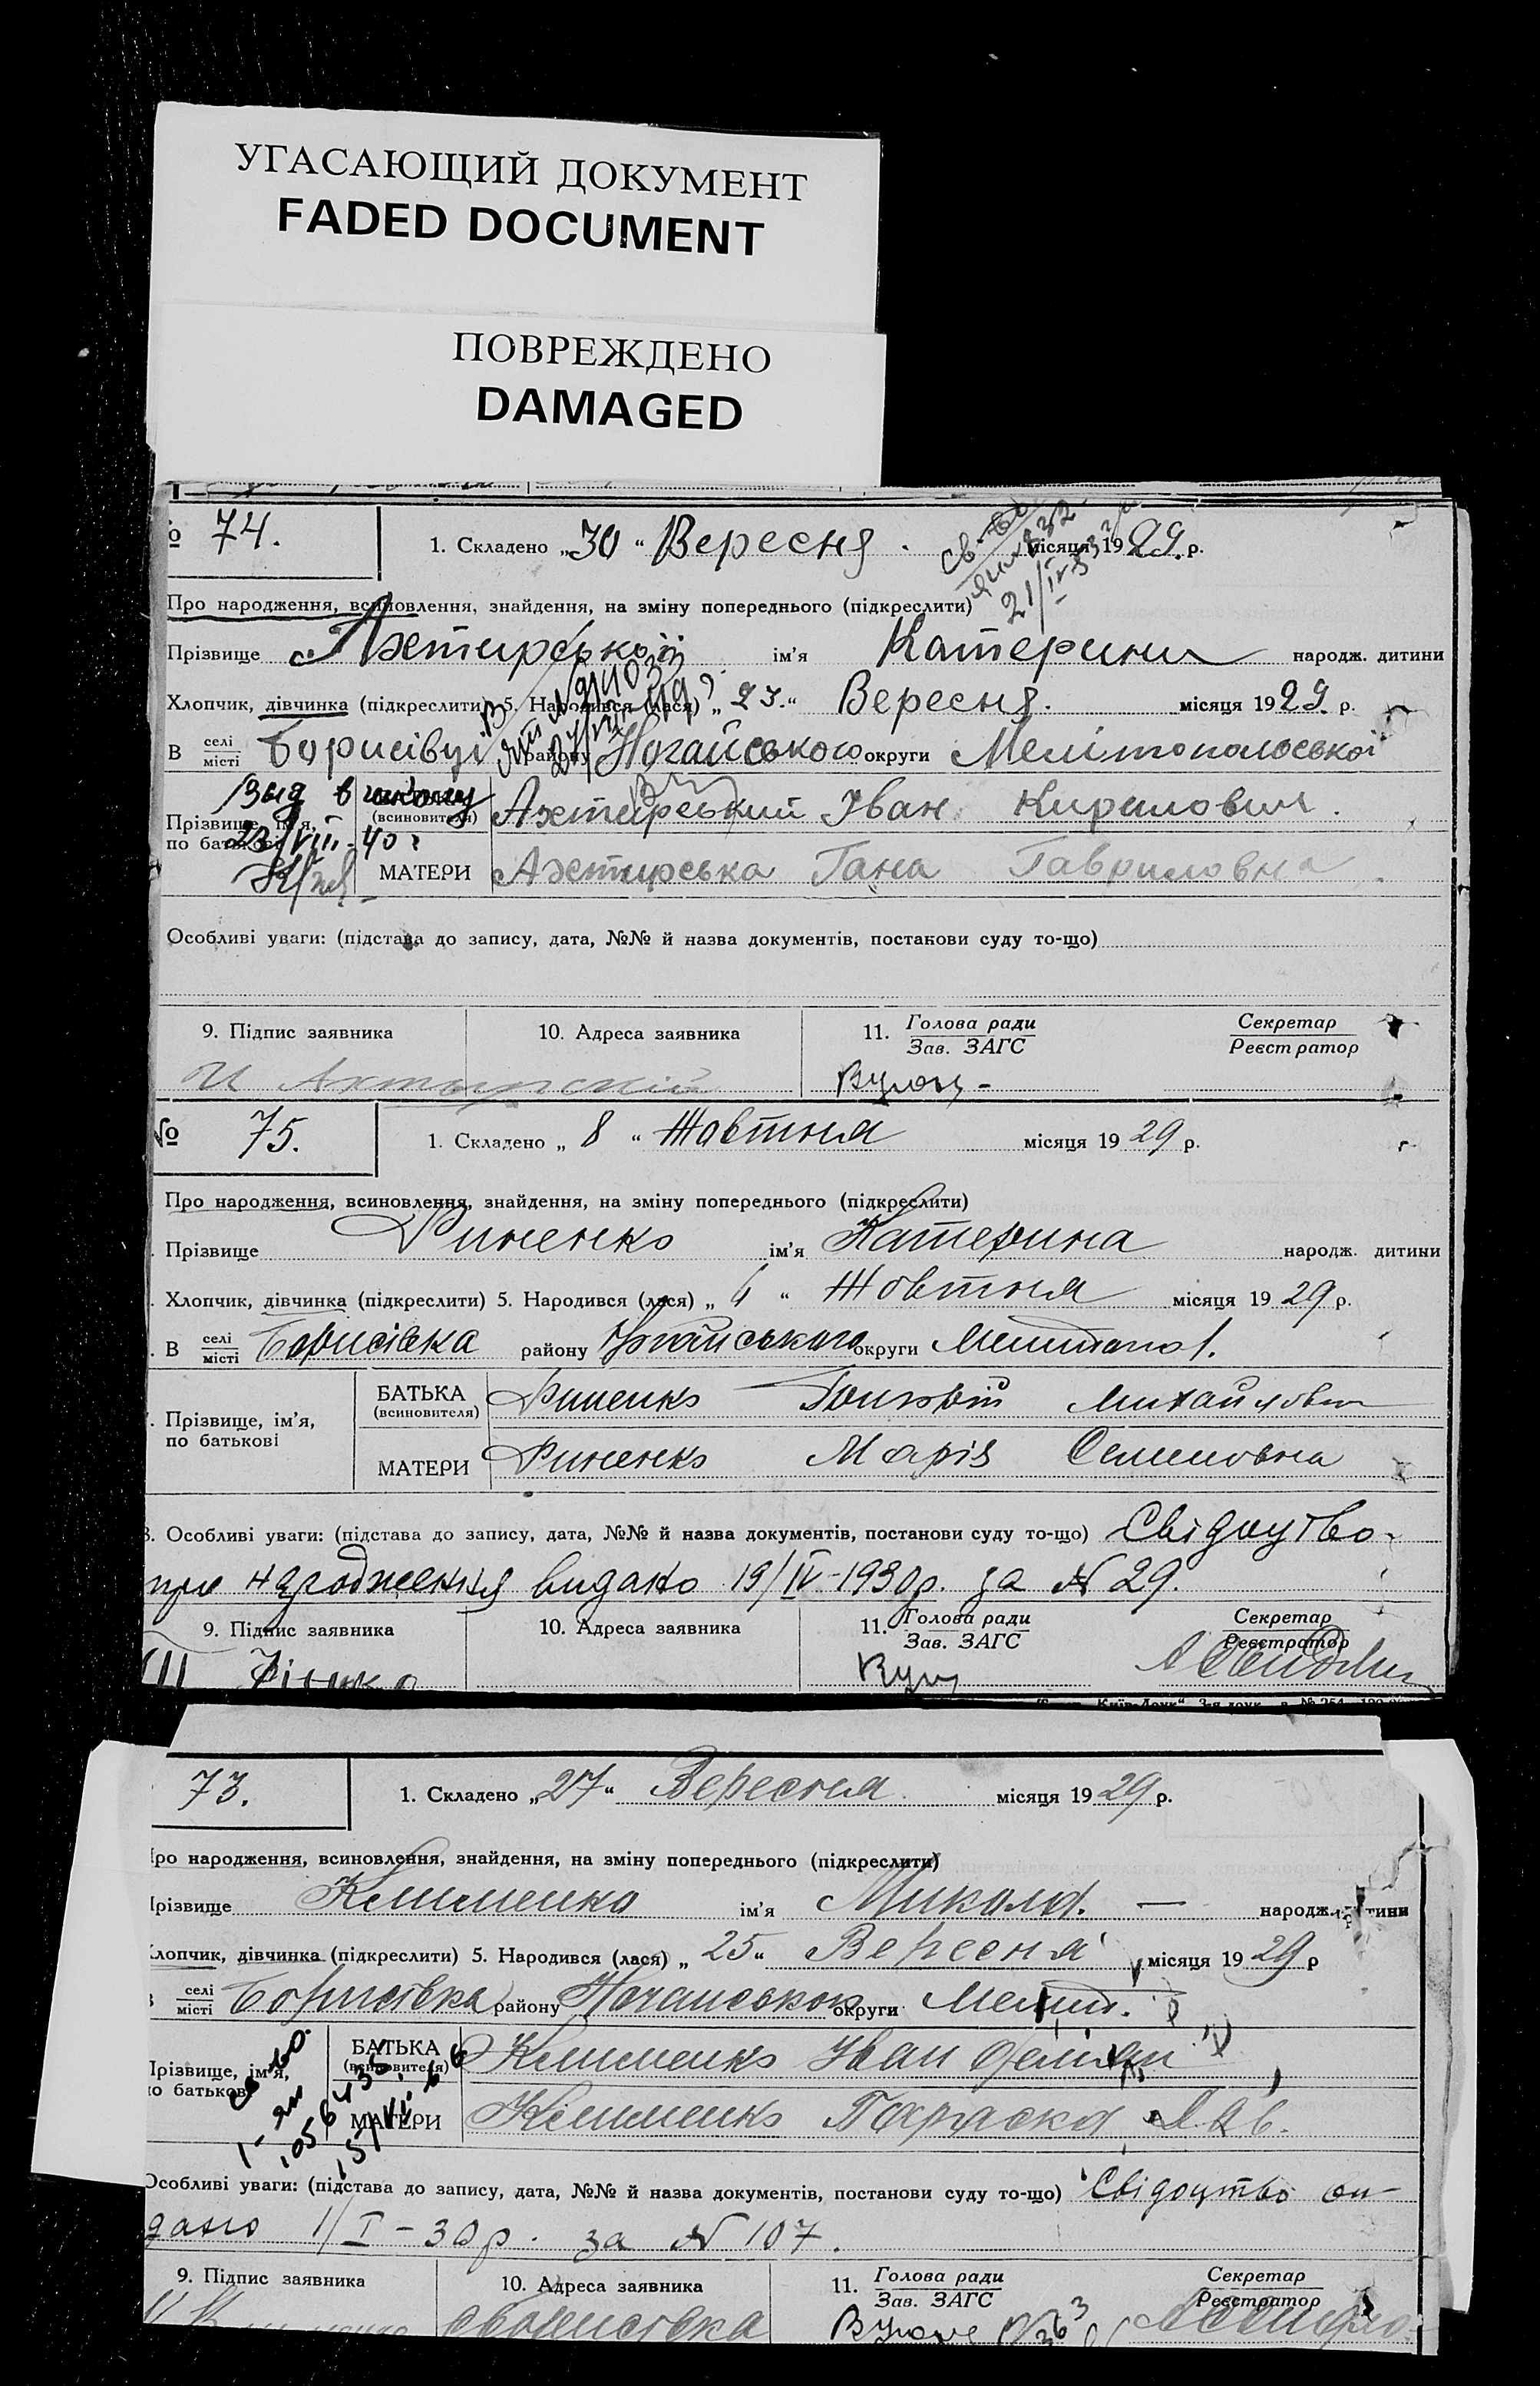 УГАСАЮЩИЙ ДОКУМЕНТ
FADED DOCUMENT
ПОВРЕЖДЕНО
DAMAGED
74. 1. Складено „30“ Вересня місяця 1929. р.
21/IV-32
Про народження, всиновлення, знайдення, на зміну попереднього (підкреслити)
Прізвище Ахтирської ім'я Катерини народж. дитини
Хлопчик, дівчинка (підкреслити) 5. Народився (лася) „23.“ Вересня. місяця 1929. р.
В селі місті Борисівці району Ногайського округи Мелітопольської
Прізвище, ім'я, по батькові (всиновителя) Ахтирський Іван Кирилович.
23/VIII-40 г
МАТЕРИ Ахтирська Гана Гавриловна.
Особливі уваги: (підстава до запису, дата, №№ й назва документів, постанови суду то-що)
9. Підпис заявника 10. Адреса заявника 11. Голова ради Зав. ЗАГС Секретар Реєстратор
И Ахтырский
№ 75. 1. Складено „ 8 “ Жовтня місяця 19 29 р.
Про народження, всиновлення, знайдення, на зміну попереднього (підкреслити)
Прізвище Риненко ім'я Катерина народж. дитини
Хлопчик, дівчинка (підкреслити) 5. Народився (лася) „ 6 “ Жовтня місяця 19 29 р.
В селі місті Борисівка району Ногайського округи
Прізвище, ім'я, по батькові БАТЬКА (всиновителя) Риненко Михайлович
МАТЕРИ Риненко Марія Семеновна
Особливі уваги: (підстава до запису, дата, №№ й назва документів, постанови суду то-що) Свідоцтво
про народження видано 19/IV-1930р. за № 29.
9. Підпис заявника 10. Адреса заявника 11. Голова ради Зав. ЗАГС Секретар Реєстратор
73. 1. Складено „27“ Вересня місяця 19 29 р.
Про народження, всиновлення, знайдення, на зміну попереднього (підкреслити)
Прізвище Клименко ім'я Микола. — народж. дитини
Хлопчик, дівчинка (підкреслити) 5. Народився (лася) „ 25 “ Вересня місяця 19 29 р
селі місті Борисівка району округи Меліт.
Прізвище, ім'я, по батькові БАТЬКА (всиновителя) Клименко Іван
МАТЕРИ Клименко Параска
Особливі уваги: (підстава до запису, дата, №№ й назва документів, постанови суду то-що) Свідоцтво ви-
дано 1/I-30р. за № 107.
9. Підпис заявника 10. Адреса заявника 11. Голова ради Зав. ЗАГС Секретар Реєстратор